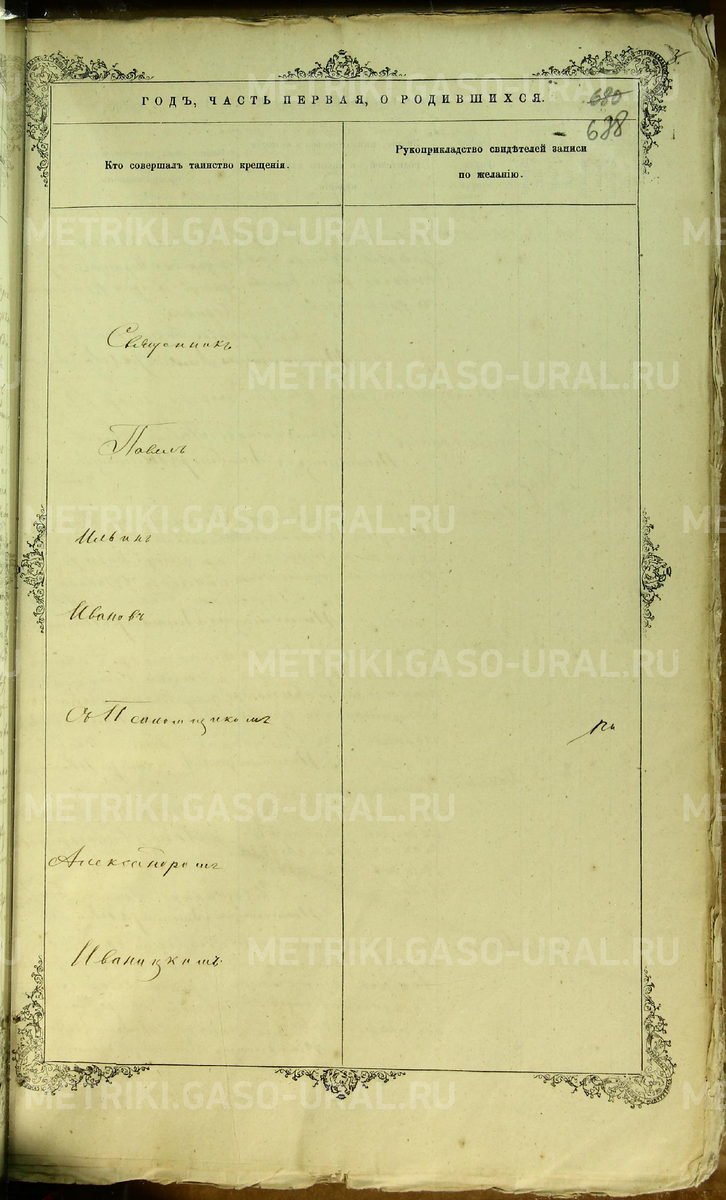 3.
ГОДЪ, ЧАСТЬ ПЕРВАЯ, О РОДИВШИХСЯ.
680
688
Кто совершалъ таинство крещенія.
Рукоприкладство свидѣтелей записи
по желанію.
Священникъ
Павелъ
Ильинъ
Ивановъ
Съ Псаломщикомъ
Александромъ
Иваницкимъ
METRIKI.GASO-URAL.RU